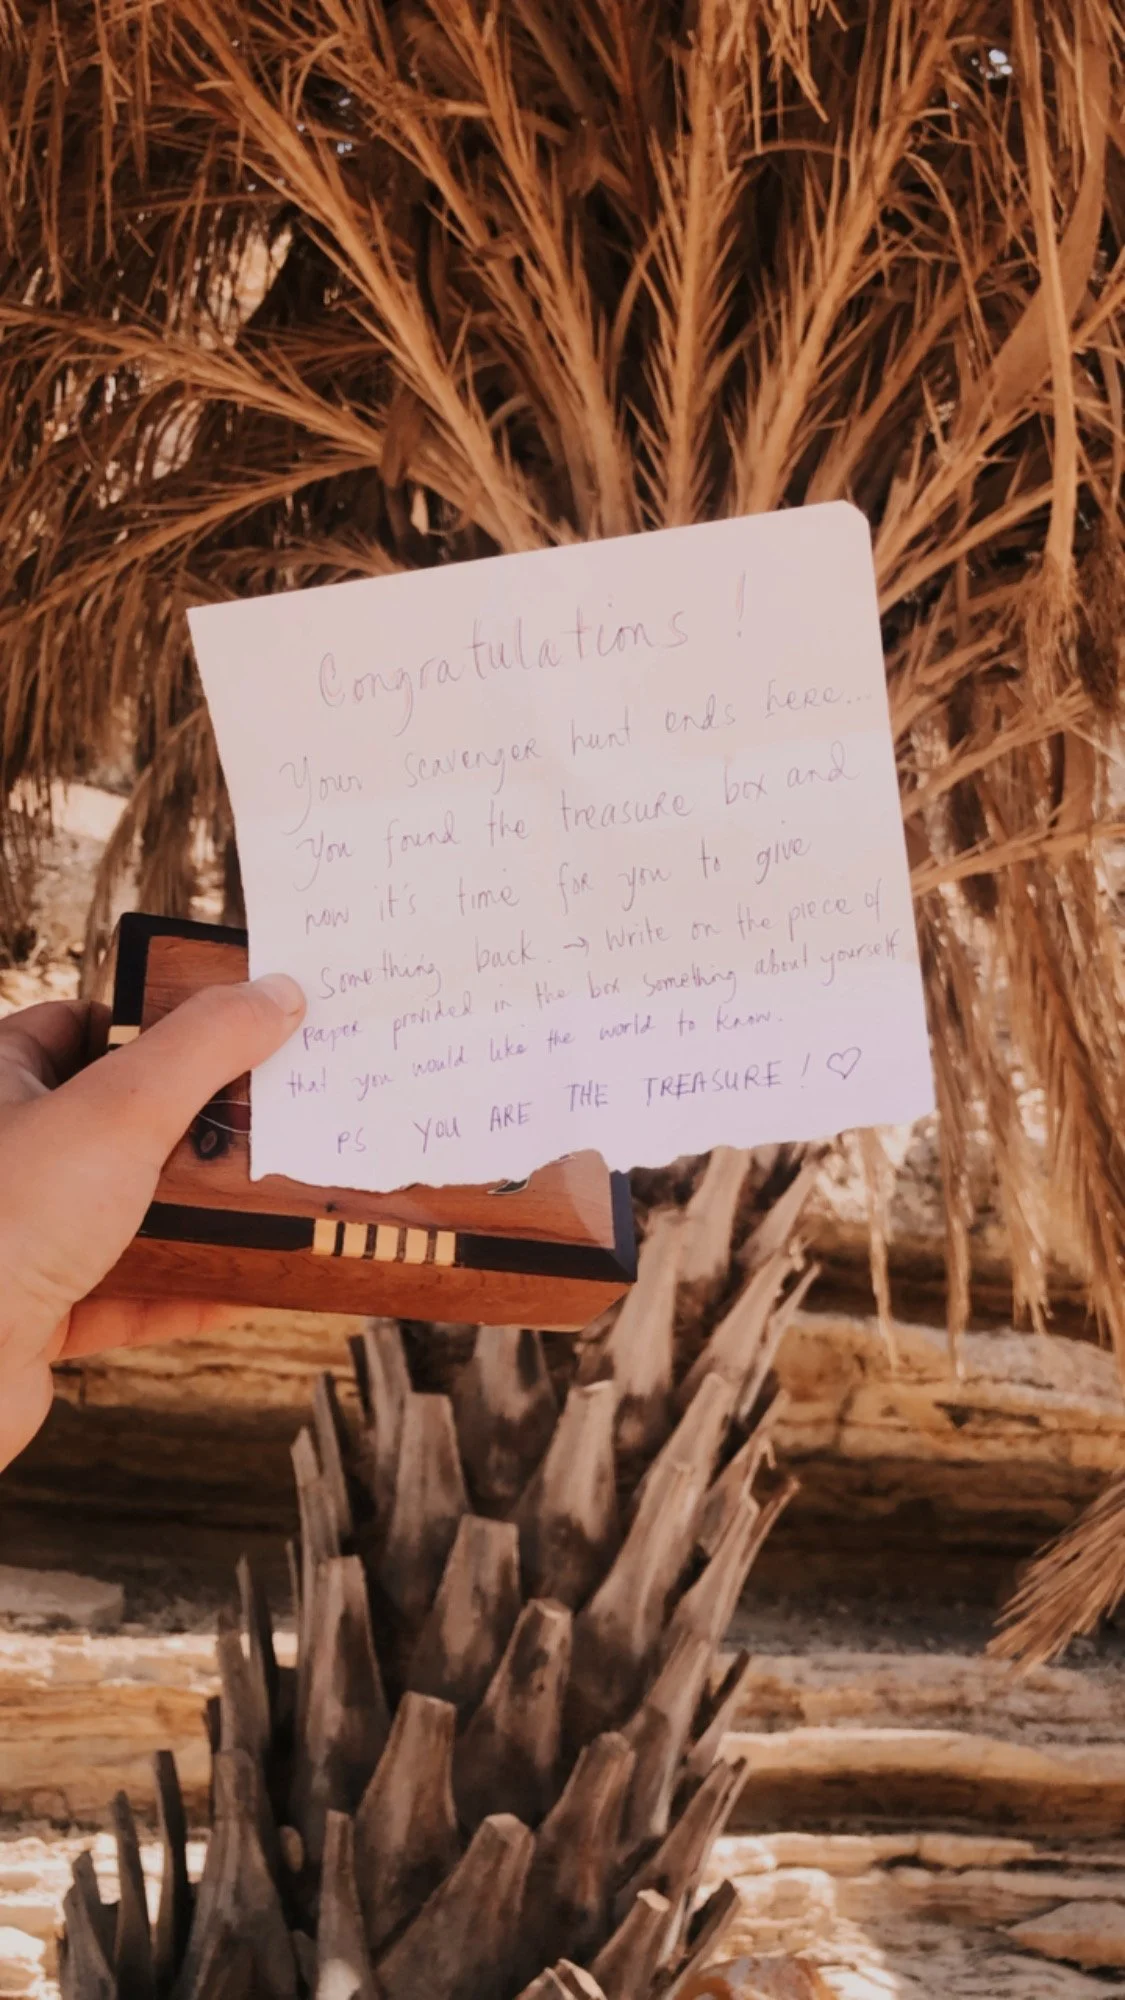 Congratulations !
Your scavenger hunt ends here...
You found the treasure box and
now it's time for you to give
something back. → Write on the piece of
paper provided in the box something about yourself
that you would like the world to know.
PS YOU ARE THE TREASURE ! ♡